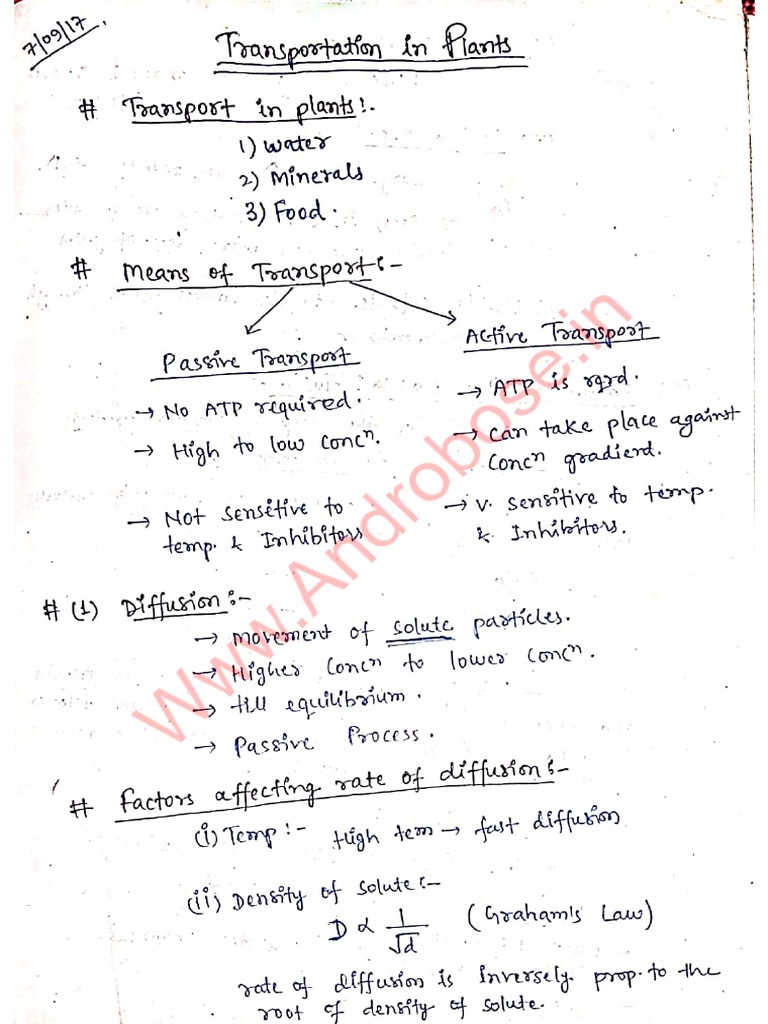 7/09/17.
Transportation in Plants
# Transport in plants:.
1) Water
2) Minerals
3) Food.
# Means of Transport:-
Passive Transport
→ No ATP required.
→ High to low concⁿ.
→ Not sensitive to
temp. & Inhibitors
Active Transport
→ ATP is rqrd.
→ can take place against
concⁿ gradient.
→ v. sensitive to temp.
& Inhibitors.
# (1) Diffusion:-
→ Movement of solute particles.
→ Higher concⁿ to lower concⁿ.
→ till equilibrium.
→ Passive Process.
# Factors affecting rate of diffusion:-
(i) Temp:- High tem → fast diffusion
(ii) Density of solute:-
D ∝ 1/√d (Graham's Law)
rate of diffusion is inversely prop. to the
root of density of solute.
www.Androbose.in